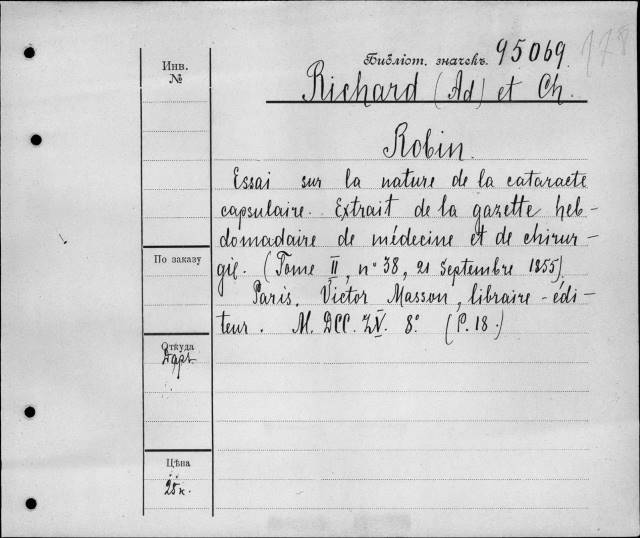 Библіот. значекъ. 95069. 178
Инв.
№
Richard (Ad) et Ch.
Robin.
Essai sur la nature de la cataracte
capsulaire. Extrait de la gazette heb-
domadaire de médecine et de chirur-
gie. (Tome II, n° 38, 21 Septembre 1855).
По заказу
Paris. Victor Masson, libraire-édi-
teur. M. DCC. LV. 8° (P. 18.)
Откуда
Даръ.
Цѣна
25 к.